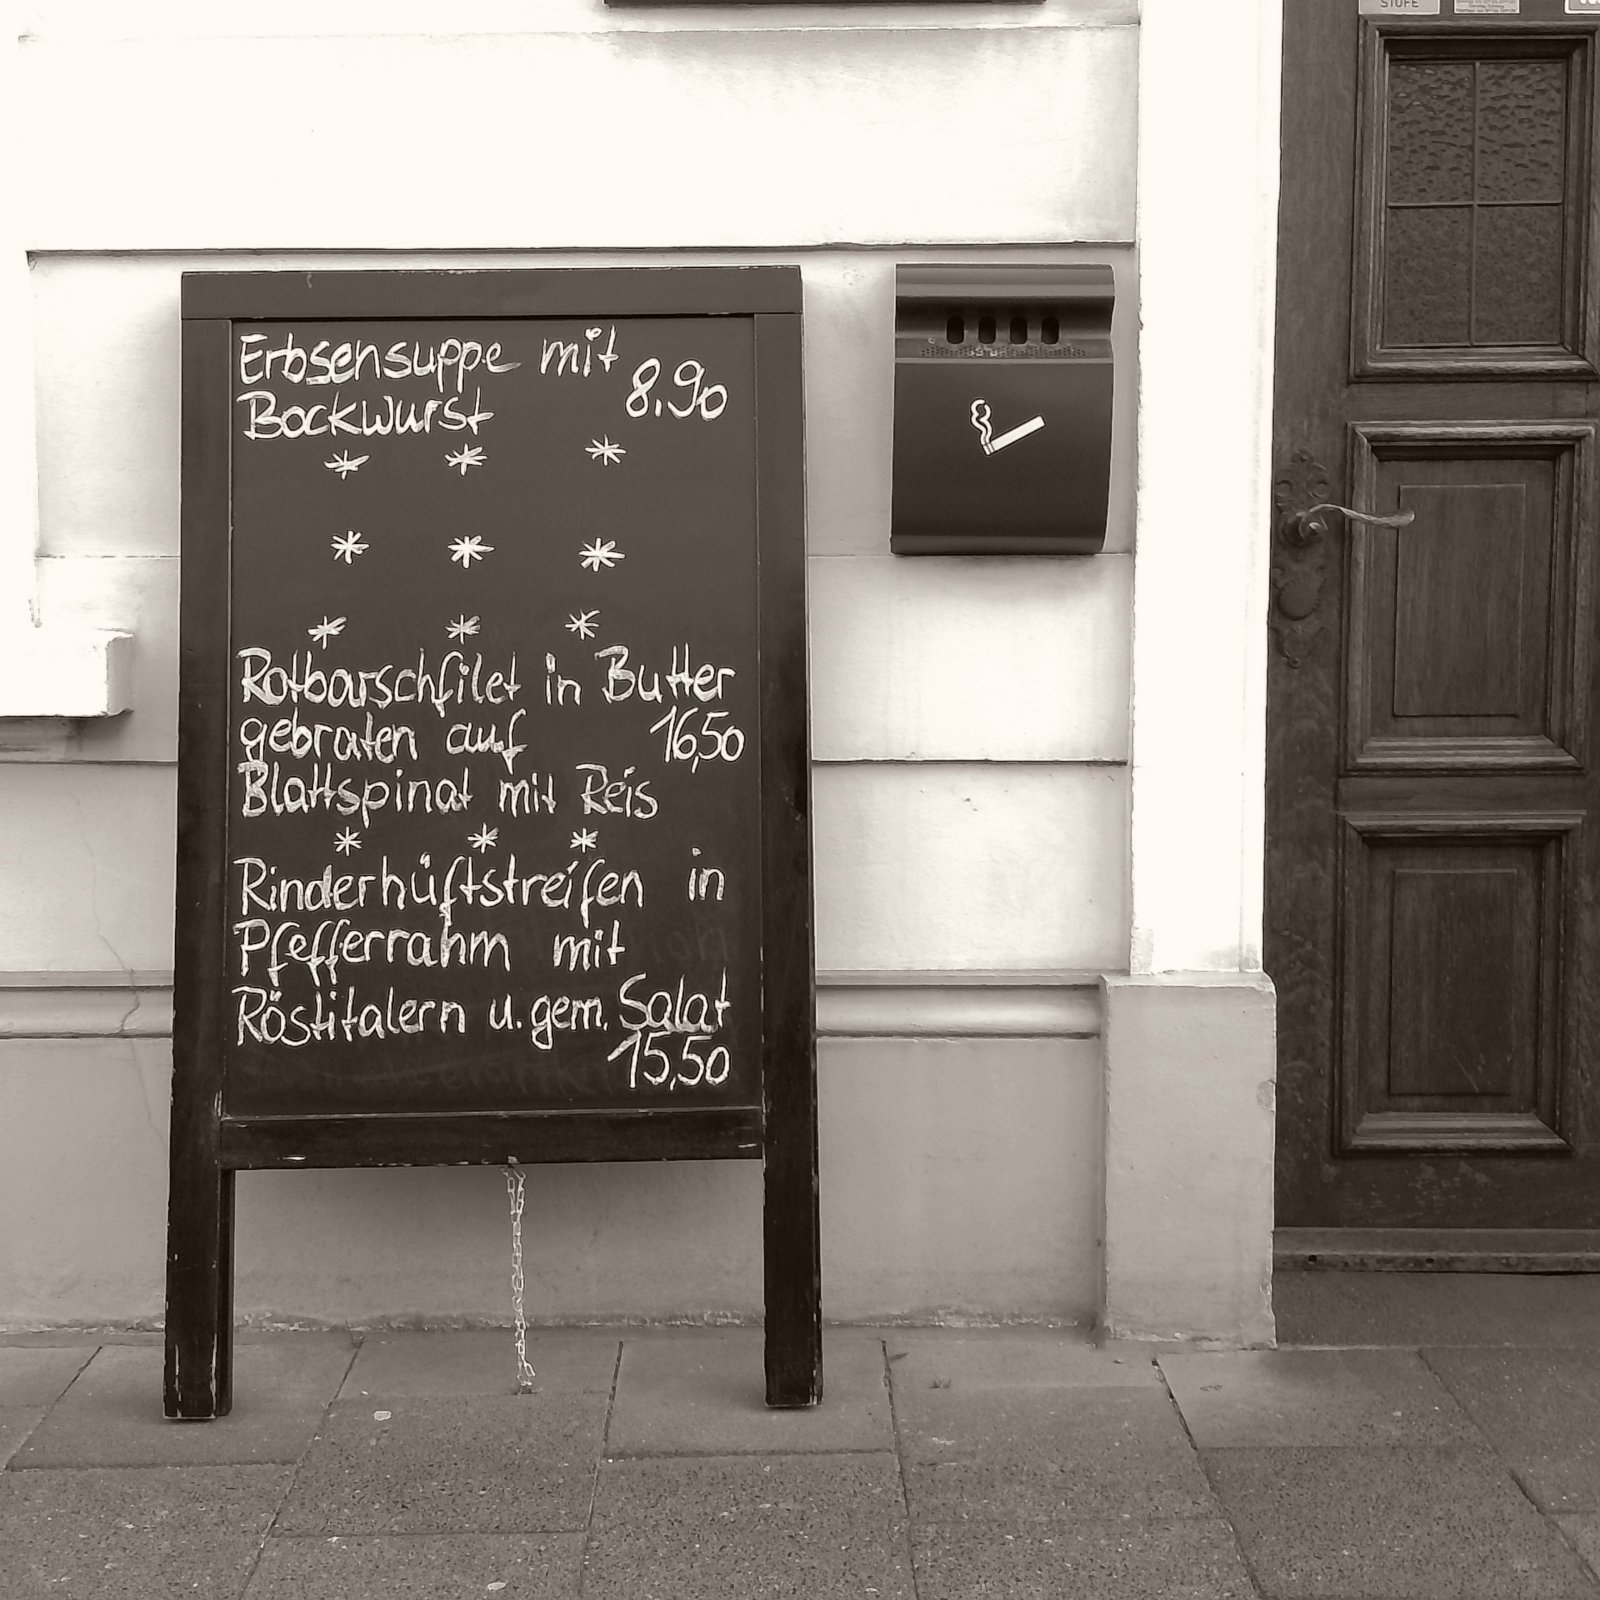 STUFE
Erbsensuppe mit
Bockwurst 8.90
* * *
* * *
* * *
Rotbarschfilet in Butter
gebraten auf 16,50
Blattspinat mit Reis
* * *
Rinderhüftstreifen in
Pfefferrahm mit
Röstitalern u. gem. Salat
15,50